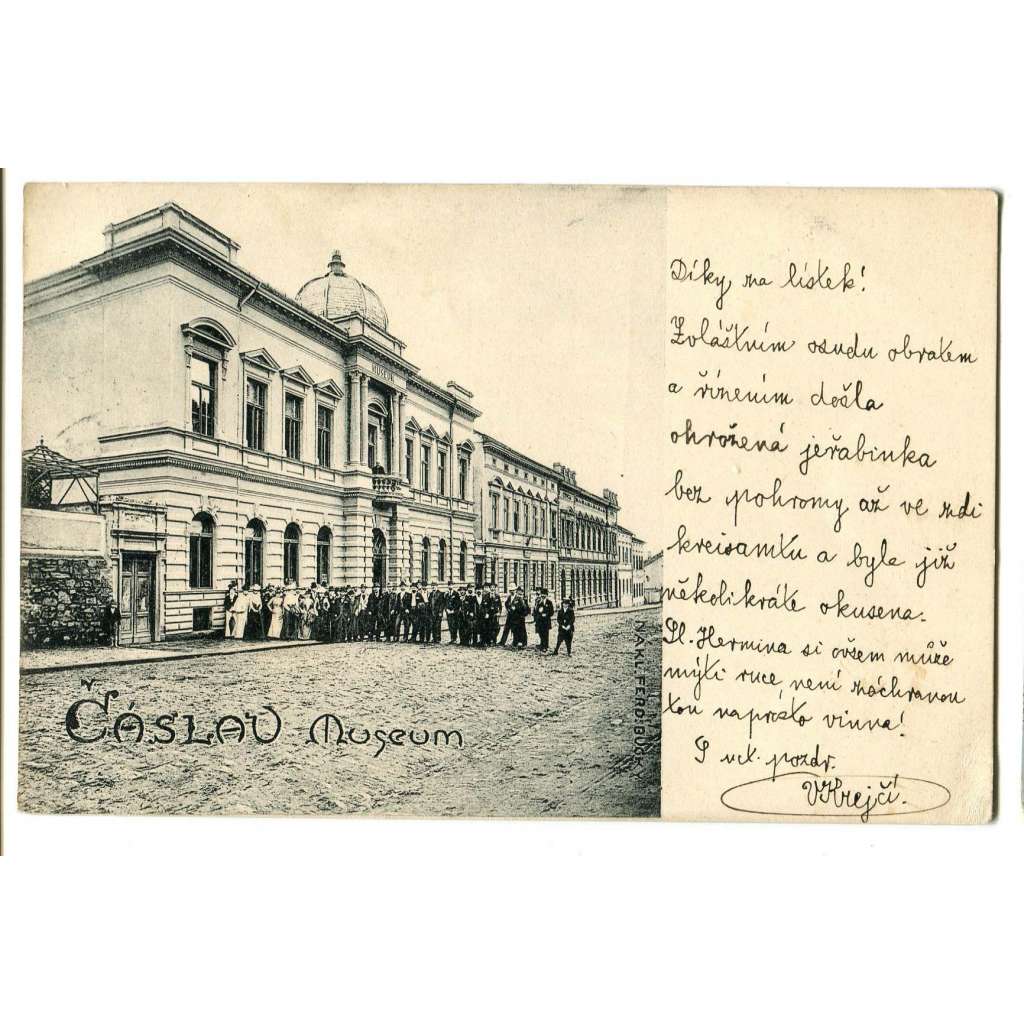 MUSEUM
ČÁSLAV Museum
NAKL. FERD. BUCKÝ
Díky za lístek!
Zvláštním osudu obratem
a řízením došla
ohrožená jeřabinka
bez pohromy až ve zdi
kreisamtu a byla již
několikráte okusena.
Sl. Hermina si ovšem může
mýti ruce, není záchranou
tou naprosto vinna!
S uct. pozdr.
VKrejčí.